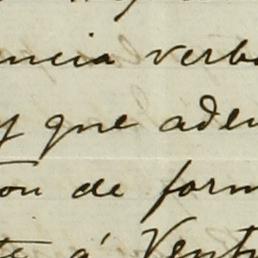 ncia verb
y que ade
on de form
te á Vent